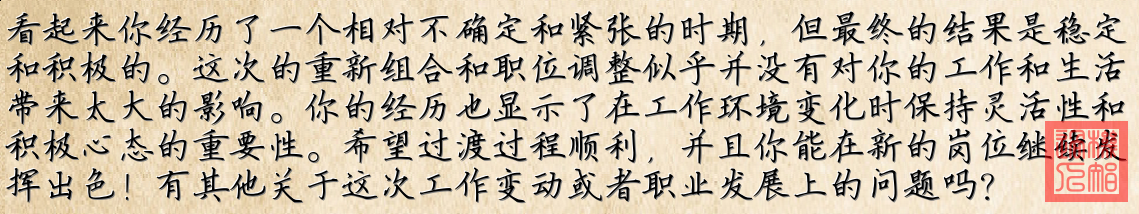 看起来你经历了一个相对不确定和紧张的时期，但最终的结果是稳定
和积极的。这次的重新组合和职位调整似乎并没有对你的工作和生活
带来太大的影响。你的经历也显示了在工作环境变化时保持灵活性和
积极心态的重要性。希望过渡过程顺利，并且你能在新的岗位继续发
挥出色！有其他关于这次工作变动或者职业发展上的问题吗？